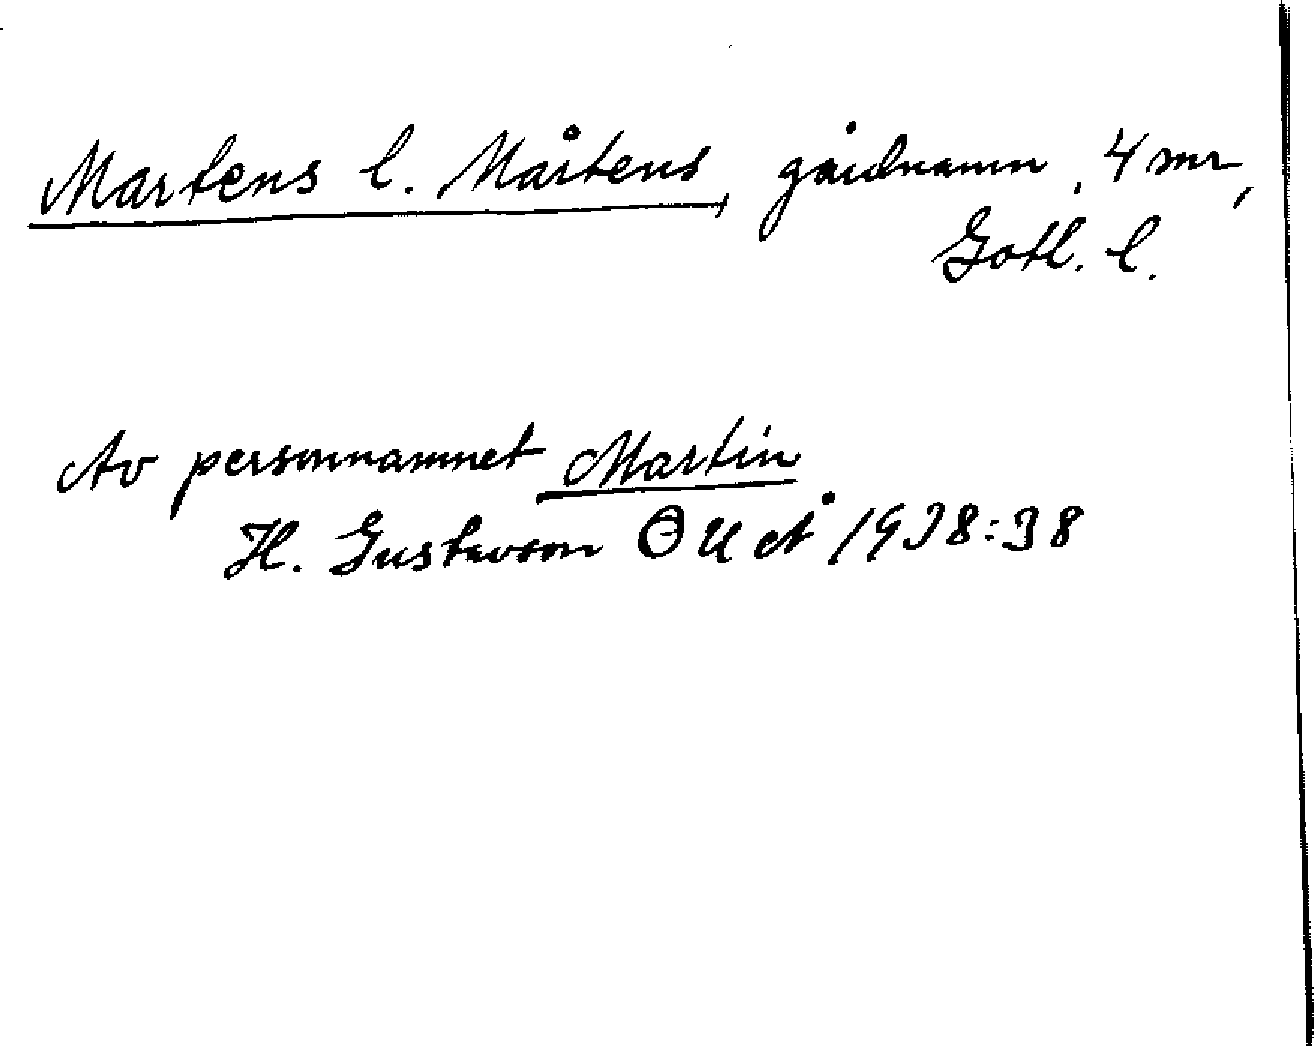 Martens l. Mårtens, gårdnamn, 4 snr,
Gotl. l.
Av personnamnet Martin
H. Gustavson ƟUÅ 1938:38